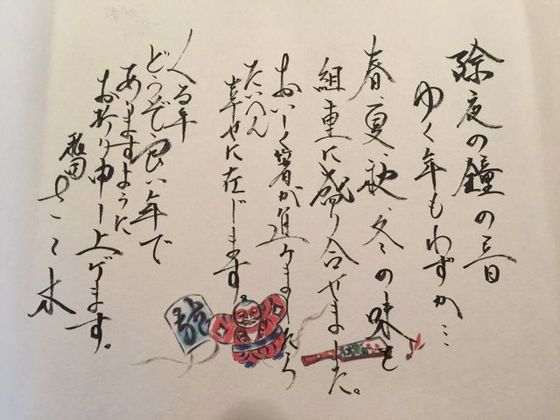 除夜の鐘の音
ゆく年もわずか…
春、夏、秋、冬の味を
組重に盛り合せました。
おいしく箸が進みましたら
たいへん
幸せに存じます
くる年
どうぞ良い年で
ありますように
お祈り申し上げます。
さゝ木
龍